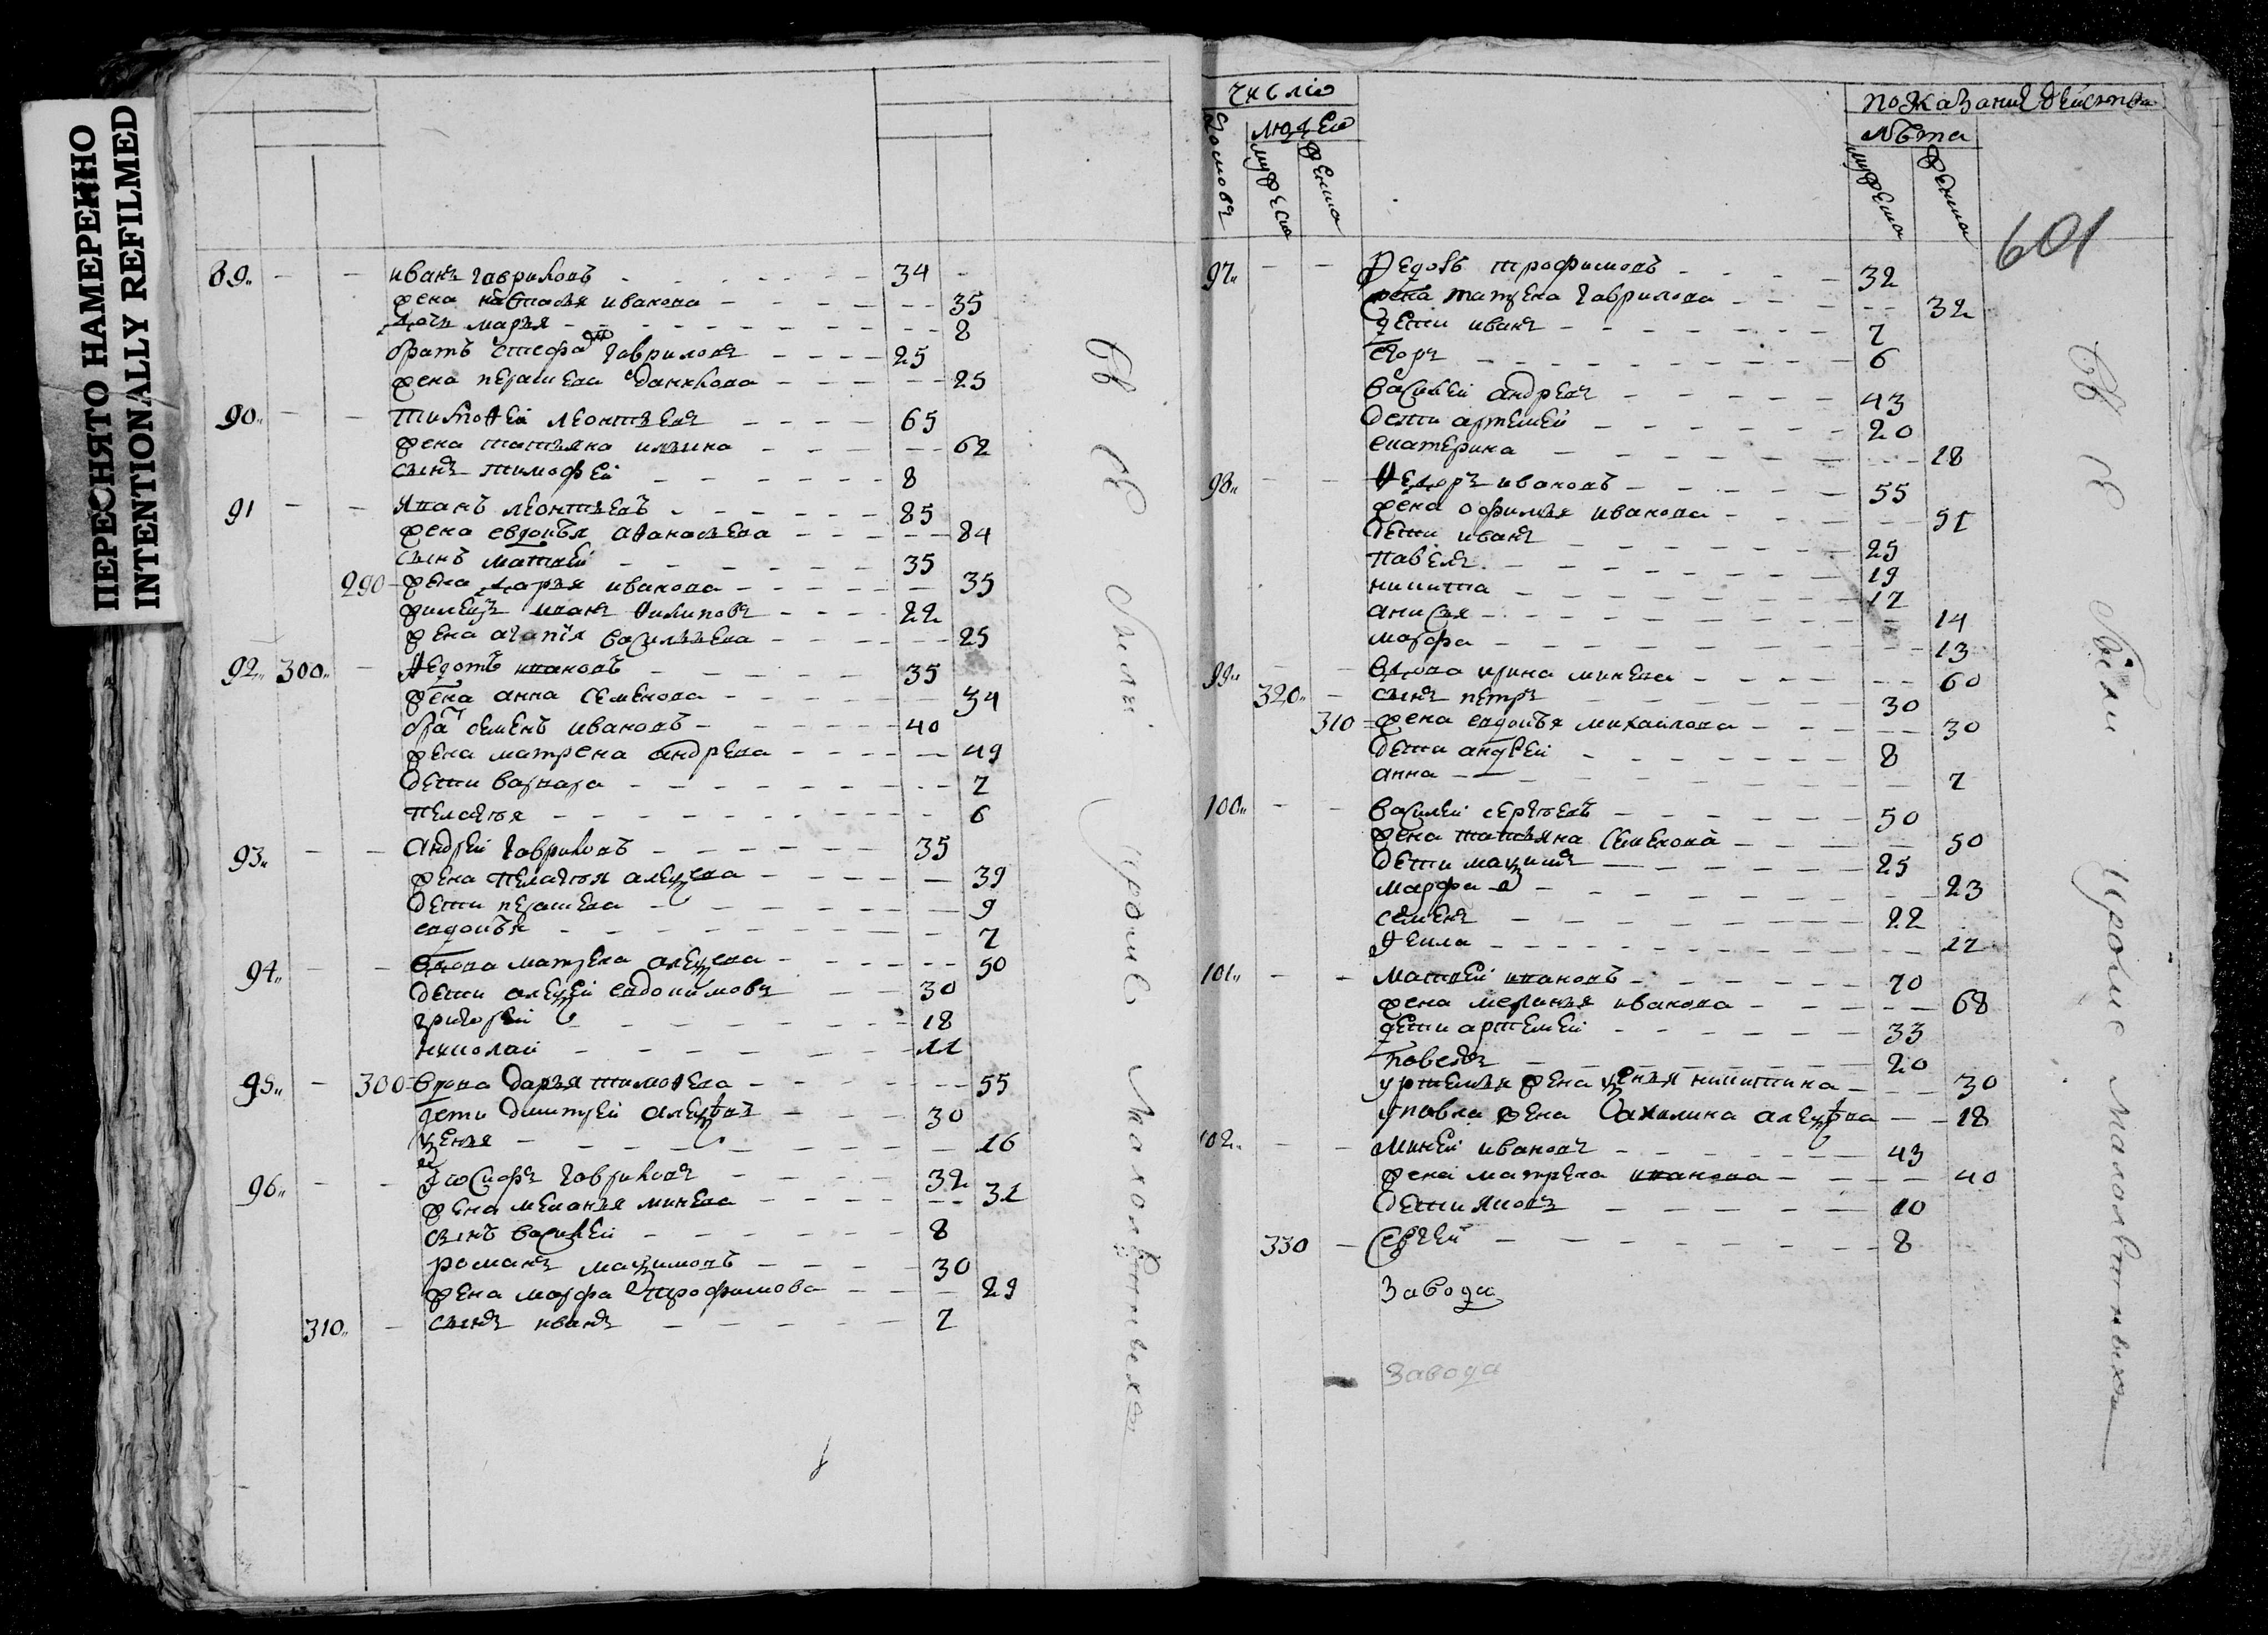 ПЕРЕСНЯТО НАМЕРЕННО
INTENTIONALLY REFILMED
89. иванъ гавриловъ 34
жена настасья иванова 35
дочь марья 8
братъ стефанъ гавриловъ 25
жена парасковья данилова 25
90. тимофей леонтьевъ 65
жена татьяна ильина 62
сынъ тимофей 8
91 иванъ леонтьевъ 85
жена евдокья афанасьева 84
сынъ матвей 35
290 жена дарья иванова 35
иванъ филиповъ 22
жена агапия васильева 25
92. 300. федотъ ивановъ 35
жена анна семенова 34
братъ семенъ ивановъ 40
жена матрена андреева 49
дети варвара 7
пелагея 6
93. андрей гавриловъ 35
жена пелагея алексеева 39
дети 9
евдокья 7
94. вдова матрена алексеева 50
дети алексей евдокимовъ 30
григорей 18
николай 11
95. 300 вдова дарья тимофеева 55
дети дмитрей алексеевъ 30
ксенья 16
96. иосифъ гавриловъ 32
жена меланья минеева 31
сынъ василей 8
романъ максимовъ 30
жена марфа трофимова 29
310. сынъ иванъ 7
всѣ были у исповѣди
число
домовъ людей
мужеска женска
показание действа
лѣта
мужеска женска
601
97. федоръ трофимовъ 32
жена матрена гаврилова 32
дети иванъ 7
егоръ 6
василей андреевъ 43
дети артемей 20
екатерина 18
98. федоръ ивановъ 55
жена офимья иванова 51
дети иванъ 25
павелъ 19
никита 17
анисья 14
марфа 13
99. вдова ирина минеева 60
320. сынъ петръ 30
310 жена евдокья михайлова 30
дети андрей 8
анна 7
100. василей сергеевъ 50
жена татьяна семенова 50
дети максимъ 25
марфа 23
семенъ 22
фекла 17
101. матвей ивановъ 70
жена меланья иванова 68
дети артемей 33
павелъ 20
у артемья жена ксенья никитина 30
у павла жена акилина алексеева 18
102. миней ивановъ 43
жена матрена иванова 40
дети яковъ 10
330 сергей 8
завода
завода
всѣ были кроме малолѣтныхъ